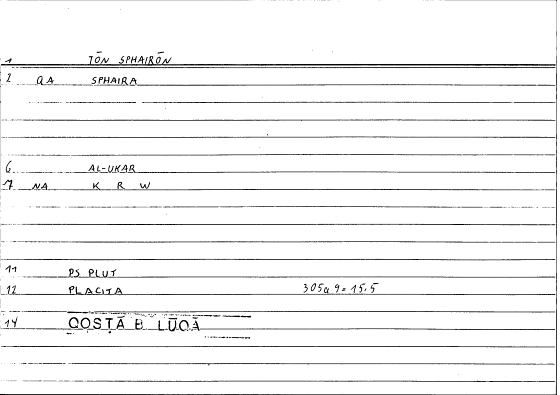 1 TŌN SPHAIRŌN
2 QA SPHAIRA
6 AL-UKAR
7 NA K R W
11 PS PLUT
12 PLACITA 305a9=15.5
14 QOSṬĀ B LŪQĀ